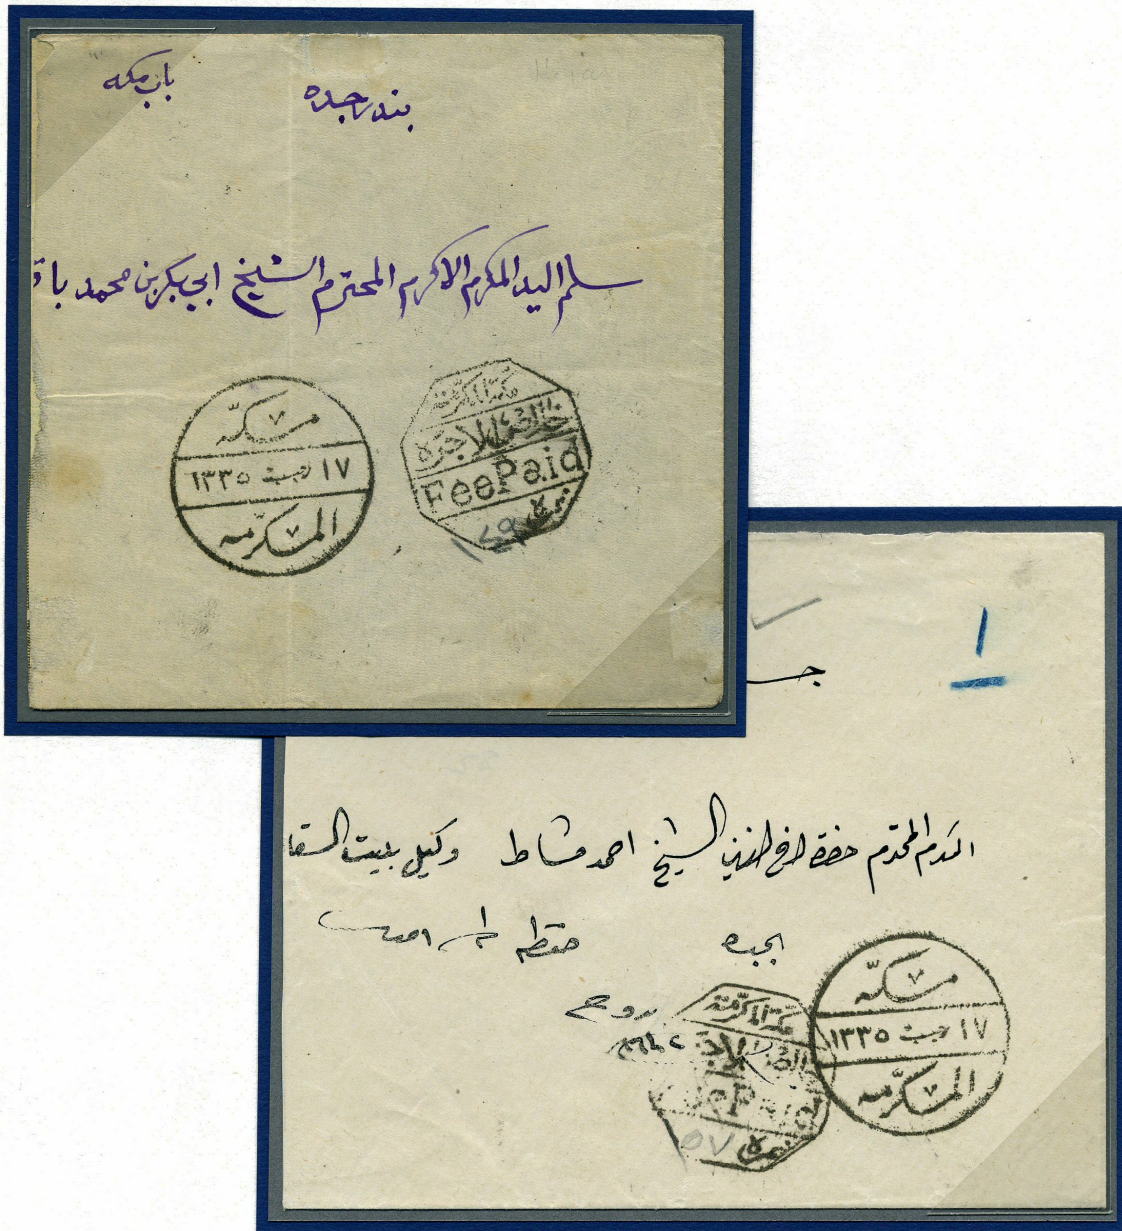 باب مكه
بندر جده
سلم اليد المكرم الاكرم المحترم الشيخ ابي بكر بن محمد با
مكّه
١٧ رجب ١٣٣٥
المكرّمه
مكة المكرّمة
خالص الاجرة
Fee Paid
نمرة
١
المكرم المحترم حضرة الشيخ احمد مشاط وكيل بيت السقا
بجده
مكّه
١٧ رجب ١٣٣٥
المكرّمه
مكة المكرّمة
خالص الاجرة
Fee Paid
نمرة ٥٧